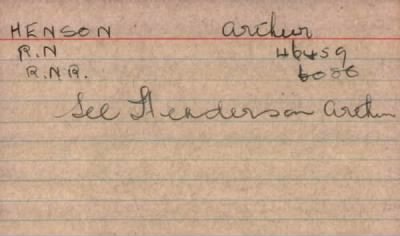 HENSON Arthur
R.N 46459
R.N.R. 6086
See Henderson Arthur